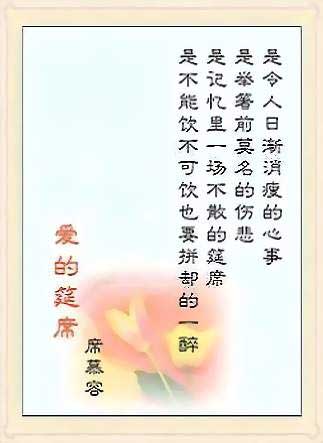 是令人日渐消瘦的心事
是举箸前莫名的伤悲
是记忆里一场不散的筵席
是不能饮不可饮也要拼却的一醉
爱的筵席
席慕容